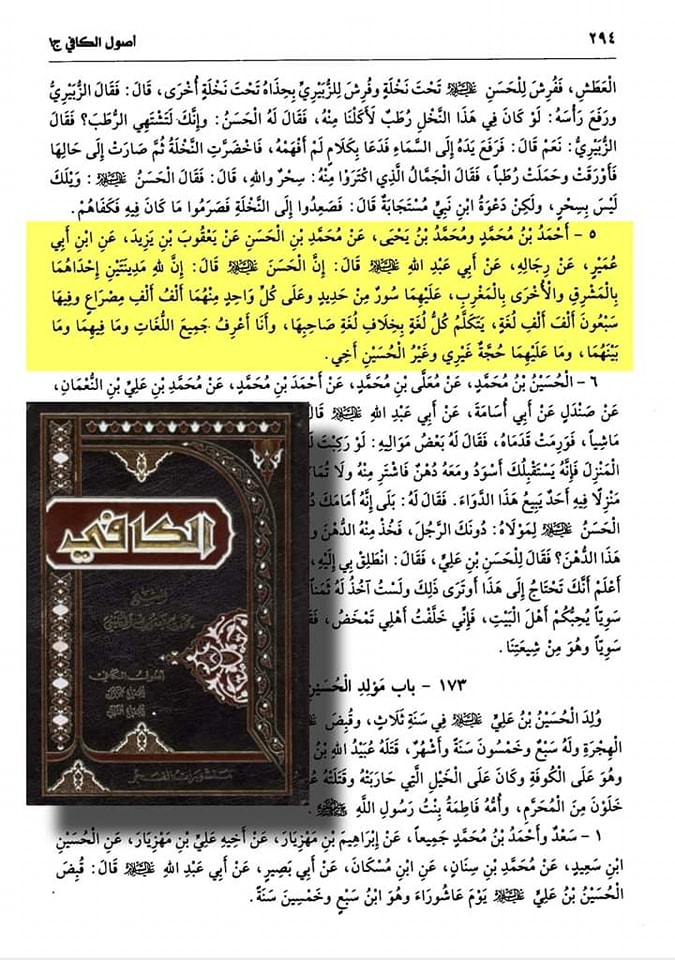 ٢٩٤
أصول الكافي ج١
الْعَطَشِ، فَفُرِشَ لِلْحَسَنِ عليه السلام تَحْتَ نَخْلَةٍ وفُرِشَ لِلزُّبَيْرِيِّ بِحِذَاهُ تَحْتَ نَخْلَةٍ أُخْرَى، قَالَ: فَقَالَ الزُّبَيْرِيُّ
ورَفَعَ رَأْسَهُ: لَوْ كَانَ فِي هَذَا النَّخْلِ رُطَبٌ لَأَكَلْنَا مِنْهُ، فَقَالَ لَهُ الْحَسَنُ: وإِنَّكَ لَتَشْتَهِي الرُّطَبَ؟ فَقَالَ
الزُّبَيْرِيُّ: نَعَمْ قَالَ: فَرَفَعَ يَدَهُ إِلَى السَّمَاءِ فَدَعَا بِكَلَامٍ لَمْ أَفْهَمْهُ، فَاخْضَرَّتِ النَّخْلَةُ ثُمَّ صَارَتْ إِلَى حَالِهَا
فَأَوْرَقَتْ وحَمَلَتْ رُطَباً، فَقَالَ الْجَمَّالُ الَّذِي اكْتَرَوْا مِنْهُ: سِحْرٌ واللهِ، قَالَ: فَقَالَ الْحَسَنُ عليه السلام: وَيْلَكَ
لَيْسَ بِسِحْرٍ، ولَكِنْ دَعْوَةُ ابْنِ نَبِيٍّ مُسْتَجَابَةٌ قَالَ: فَصَعِدُوا إِلَى النَّخْلَةِ فَصَرَمُوا مَا كَانَ فِيهِ فَكَفَاهُمْ.
٥ - أَحْمَدُ بْنُ مُحَمَّدٍ ومُحَمَّدُ بْنُ يَحْيَى، عَنْ مُحَمَّدِ بْنِ الْحَسَنِ عَنْ يَعْقُوبَ بْنِ يَزِيدَ، عَنِ ابْنِ أَبِي
عُمَيْرٍ، عَنْ رِجَالِهِ، عَنْ أَبِي عَبْدِ اللهِ عليه السلام قَالَ: إِنَّ الْحَسَنَ عليه السلام قَالَ: إِنَّ لِلَّهِ مَدِينَتَيْنِ إِحْدَاهُمَا
بِالْمَشْرِقِ والْأُخْرَى بِالْمَغْرِبِ، عَلَيْهِمَا سُورٌ مِنْ حَدِيدٍ وعَلَى كُلِّ وَاحِدٍ مِنْهُمَا أَلْفُ أَلْفِ مِصْرَاعٍ وفِيهَا
سَبْعُونَ أَلْفَ أَلْفِ لُغَةٍ، يَتَكَلَّمُ كُلُّ لُغَةٍ بِخِلَافِ لُغَةِ صَاحِبِهَا، وأَنَا أَعْرِفُ جَمِيعَ اللُّغَاتِ ومَا فِيهِمَا ومَا
بَيْنَهُمَا، ومَا عَلَيْهِمَا حُجَّةٌ غَيْرِي وغَيْرُ الْحُسَيْنِ أَخِي.
٦ - الْحُسَيْنُ بْنُ مُحَمَّدٍ، عَنْ مُعَلَّى بْنِ مُحَمَّدٍ، عَنْ أَحْمَدَ بْنِ مُحَمَّدٍ، عَنْ مُحَمَّدِ بْنِ عَلِيِّ بْنِ النُّعْمَانِ،
عَنْ صَنْدَلٍ عَنْ أَبِي أُسَامَةَ، عَنْ أَبِي عَبْدِ اللهِ عليه السلام
مَاشِياً، فَوَرِمَتْ قَدَمَاهُ، فَقَالَ لَهُ بَعْضُ مَوَالِيهِ: لَوْ رَكِبْتَ
الْمَنْزِلَ فَإِنَّهُ يَسْتَقْبِلُكَ أَسْوَدُ ومَعَهُ دُهْنٌ فَاشْتَرِ مِنْهُ ولَا
مَنْزِلًا فِيهِ أَحَدٌ يَبِيعُ هَذَا الدَّوَاءَ. فَقَالَ لَهُ: بَلَى إِنَّهُ أَمَامَكَ
الْحَسَنُ عليه السلام لِمَوْلَاهُ: دُونَكَ الرَّجُلَ، فَخُذْ مِنْهُ الدُّهْنَ
هَذَا الدُّهْنَ؟ فَقَالَ لِلْحَسَنِ بْنِ عَلِيٍّ، فَقَالَ: انْطَلِقْ بِي إِلَيْهِ،
أَعْلَمْ أَنَّكَ تَحْتَاجُ إِلَى هَذَا أَوَتَرَى ذَلِكَ ولَسْتُ آخُذُ لَهُ ثَمَناً
سَوِيّاً يُحِبُّكُمْ أَهْلَ الْبَيْتِ، فَإِنِّي خَلَّفْتُ أَهْلِي تَمْخَضُ،
سَوِيّاً وهُوَ مِنْ شِيعَتِنَا.
١٧٣ - باب مَوْلِدِ الْحُسَيْنِ
وُلِدَ الْحُسَيْنُ بْنُ عَلِيٍّ عليه السلام فِي سَنَةِ ثَلَاثٍ، وقُبِضَ
الْهِجْرَةِ ولَهُ سَبْعٌ وخَمْسُونَ سَنَةً وأَشْهُرٌ، قَتَلَهُ عُبَيْدُ اللهِ بْنُ
وهُوَ عَلَى الْكُوفَةِ وكَانَ عَلَى الْخَيْلِ الَّتِي حَارَبَتْهُ وقَتَلَتْهُ
خَلَوْنَ مِنَ الْمُحَرَّمِ، وأُمُّهُ فَاطِمَةُ بِنْتُ رَسُولِ اللَّهِ
١ - سَعْدٌ وأَحْمَدُ بْنُ مُحَمَّدٍ جَمِيعاً، عَنْ إِبْرَاهِيمَ بْنِ مَهْزِيَارَ، عَنْ أَخِيهِ عَلِيِّ بْنِ مَهْزِيَارَ، عَنِ الْحُسَيْنِ
ابْنِ سَعِيدٍ، عَنْ مُحَمَّدِ بْنِ سِنَانٍ، عَنِ ابْنِ مُسْكَانَ، عَنْ أَبِي بَصِيرٍ، عَنْ أَبِي عَبْدِ اللهِ عليه السلام قَالَ: قُبِضَ
الْحُسَيْنُ بْنُ عَلِيٍّ عليه السلام يَوْمَ عَاشُورَاءَ وهُوَ ابْنُ سَبْعٍ وخَمْسِينَ سَنَةً.
الكافي